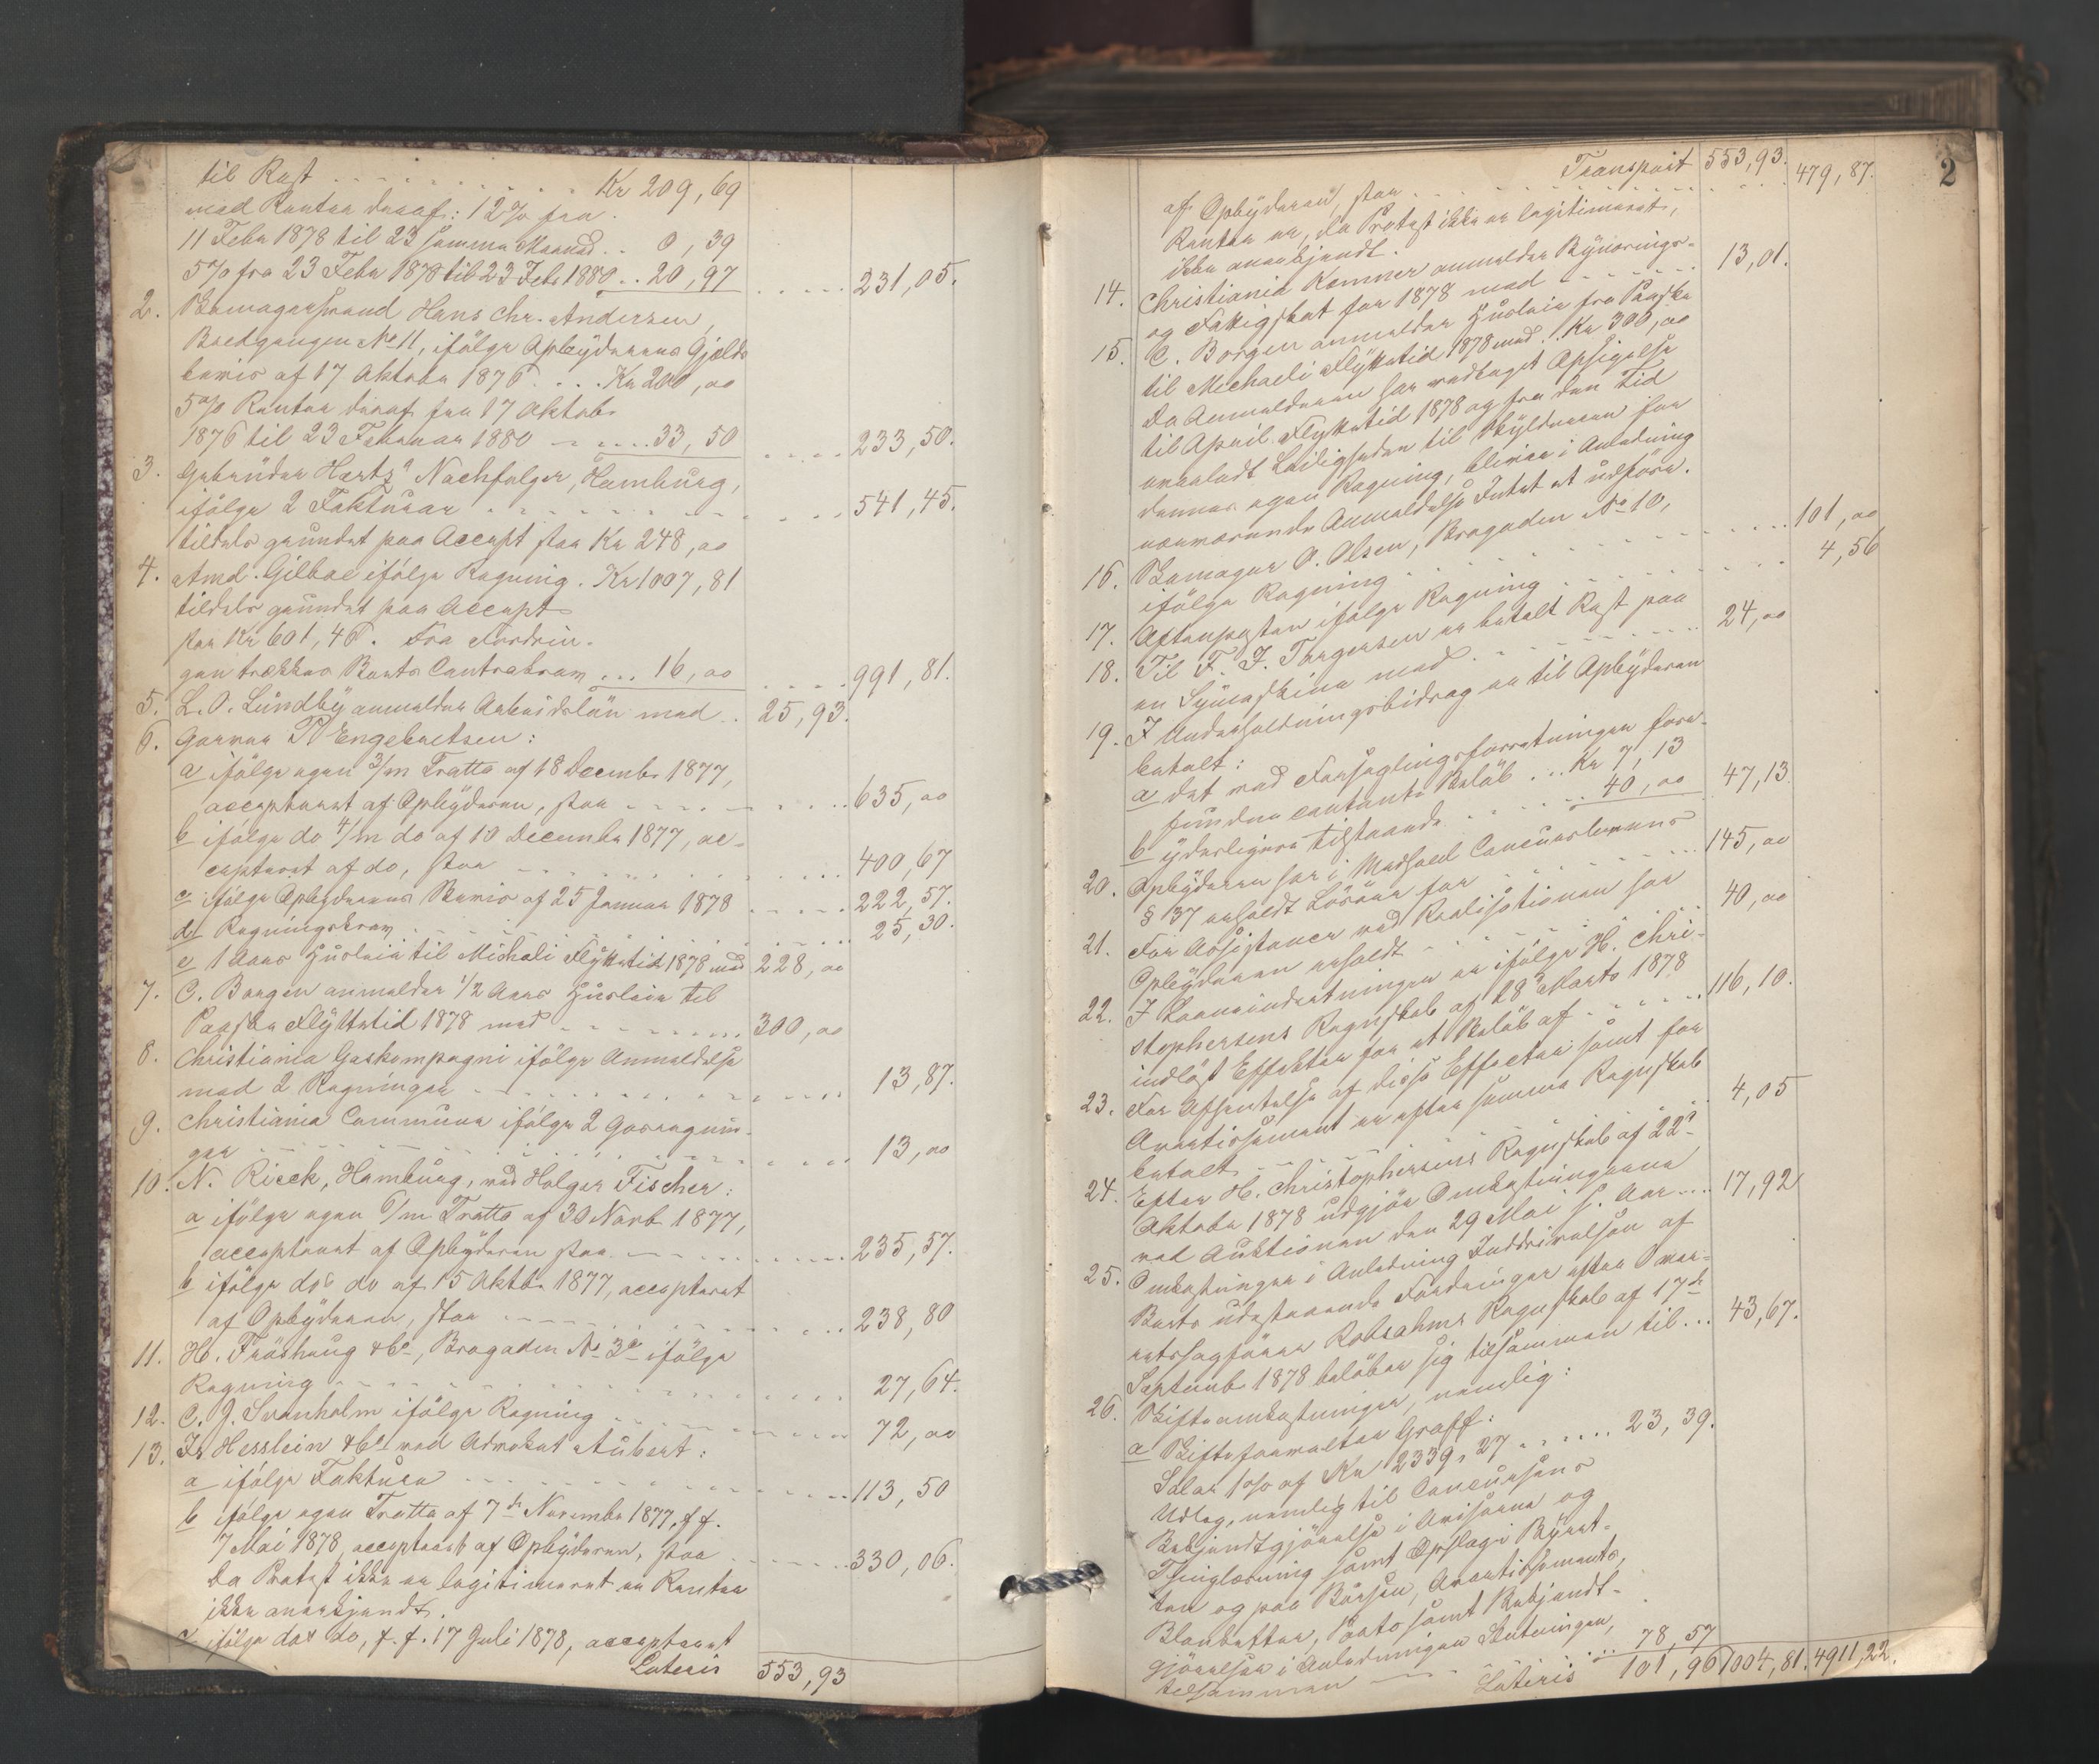 til Rest . . . . . . . . . . Kr 209,69
med Renter deraf: 12% fra
11 Febr 1878 til 23 samme Maaned . . 0,39
5% fra 23 Febr 1878 til 23 Febr 1880 . . 20,97 . . . . . 231,05.
2. Skomagersvend Hans Chr. Andersen,
Bredgangen No 11, ifölge Opbyderens Gjelds
bevis af 17 Oktober 1876 . . . . Kr 200,00
5% Renter deraf fra 17 Oktob.
1876 til 23 Februar 1880 . . . . 33,50 . . . . . 233,50.
3. Gebrüder Hertz' Nachfolger, Hamburg,
ifölge 2 Fakturaer . . . . . . . . 541,45.
tildels grundet paa Accept stor Kr 248,00
4. Amd. Gilboe ifölge Regning . Kr 1007,81
tildels grundet paa Accept
stor Kr 601,46. Fra Fordrin-
gen trækkes Boets Contrakrav . . . 16,00 . . . . 991,81.
5. L. O. Lundby anmelder Arbeidslön med . . 25,93.
6. Garver P Engebretsen:
a ifölge egen 3/m Tratte af 18 Decembr 1877,
accepteret af Opbyderen, stor . . . . . . . 635,00
b ifölge do 4/m do af 10 December 1877, ac-
cepteret af do, stor . . . . . . . . 400,67
c ifölge Opbyderens Bevis af 25 Januar 1878 . . . . . 222,57.
d Regningskrav . . . . . . . . 25,30.
e 1 Aars Huusleie til Michali Flyttetid 1878 med 228,00
7. C. Borgen anmelder 1/2 Aars Huusleie til
Paaske Flyttetid 1878 med . . . . . . . 300,00
8. Christiania Gaskompagni ifölge Anmeldelse
med 2 Regninger . . . . . . . . 13,87.
9. Christiania Commune ifölge 2 Gasregnin-
ger . . . . . . . . 13,00
10. N. Rieck, Hamburg, ved Holger Fischer:
a ifölge egen 6/m Tratte af 30 Novb 1877,
accepteret af Opbyderen stor . . . . . . . 235,57.
b ifölge do do af 15 Oktbr 1877, accepteret
af Opbyderen, stor . . . . . . . . 238,80
11. H. Fröshaug & Co, Brogaden No 3 ifölge
Regning . . . . . . . . 27,64.
12. C. J. Svanholm ifölge Regning . . . . . . . 72,00
13. Is. Hesslein & Co ved Advokat Aubert:
a ifölge Faktura . . . . . . . . 113,50
b ifölge egen Tratte af 7de November 1877, f. f.
7 Mai 1878, accepteret af Opbyderen, stor . . . . . . 330,06.
Da Protest ikke er legitimeret er Renter
ikke anerkjendt.
c ifölge do do, f. f. 17 Juli 1878, accepteret
Lateris 553,93
2
Transport 553,93. 479,87.
af Opbyderen, stor . . . . . . . .
Renter er, da Protest ikke er legitimeret,
ikke anerkjendt.
14. Christiania Kemner anmelder Bynærings-
og Fattigskat for 1878 med . . . . . . . 13,01.
15. C. Borgen anmelder Huusleie fra Paaske
til Michaeli Flyttetid 1878 med . . Kr 300,00
Da Anmelderen har modtaget Opsigelse
til April Flyttetid 1878 og fra den Tid
overladt Leiligheden til Skyldneren for
dennes egen Regning, bliver i Anledning
nærværende Anmeldelse Intet at udföre.
16. Skomager O. Olsen, Brogaden No 10,
ifölge Regning . . . . . . . . 101,00
17. Aftenposten ifölge Regning . . . . . . . 4,56
18. Til F. J. Torgersen er betalt Rest paa
en Symaskine med . . . . . . . 24,00
19. I Underholdningsbidrag er til Opbyderen
betalt:
a det ved Forseglingsforretningen fore-
fundne contante Beløb . . . Kr 7,13
b yderligere tilstaaede . . . . . 40,00 47,13.
20. Opbyderen har i Medhold Concurslovens
§ 37 erholdt Lösöre for . . . . . . . 145,00
21. For Assistance ved Realisationen har
Opbyderen erholdt . . . . . . . 40,00
22. I Laaneindretningen er ifölge H. Chri-
stophersens Regnskab af 28 Marts 1878
indlöst Effekter for et Beløb af . . . . . 116,10.
23. For Afhentelse af disse Effecter samt for
Avertissement er efter samme Regnskab
betalt . . . . . . . 4,05
24. Efter H. Christophersens Regnskab af 22de
Oktober 1878 udgjör Omkostningerne
ved Auktionen den 29 Mai s. Aar . . . . 17,92
25. Omkostninger i Anledning Inddrivelsen af
Boets udestaaende Fordringer efter Over-
retssagförer Robsahms Regnskab af 17de
Septemb. 1878 belöber sig tilsammen til . . . 43,67.
26. Skifteomkostninger, nemlig:
a Skifteforvalter Graff:
Salar 1% af Kr 2339,27 . . . . . . 23,39.
Udlæg, nemlig til Concursens
Bekjendtgjörelse i Aviserne og
Thinglæsning samt Opslag i Byret-
ten og paa Börsen, Avertissements,
Blanketter, Porto samt Bekjendt-
gjörelser i Anledningen Slutningen,
tilsammen . . . . 78,57
Lateris 101,96 1004,81. 4911,22.